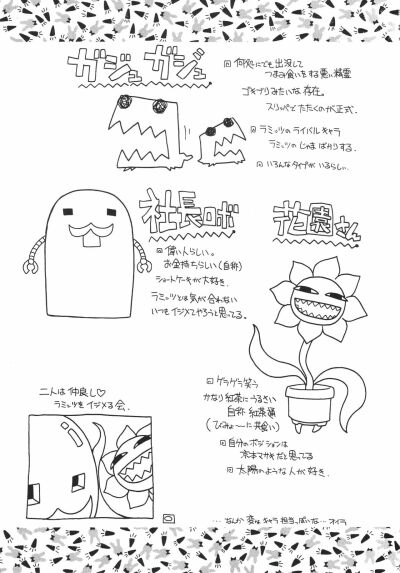 ガジュガジュ
回 何処にでも出没して
つまみ食いをする悪い精霊
ゴキブリみたいな存在。
スリッパでたたくのが正式。
回 ラミッツのライバルキャラ
ラミッツのじゃまばかりする。
回 いろんなタイプがいるらしい。
社長ロボ
回 偉い人らしい。
お金持ちらしい(自称)
ショートケーキが大好き。
ラミッツとは気が合わない
いつもイジメてやろうと思ってる。
花園さん
回 ゲラゲラ笑う
かなり紅茶にうるさい
自称 紅茶通
回 自分のポジションは
だと思ってる
回 太陽のような人が好き。
二人は仲良し♡
ラミッツをイジメる会。
…なんか 変なキャラ担当っぽいな…オイラ